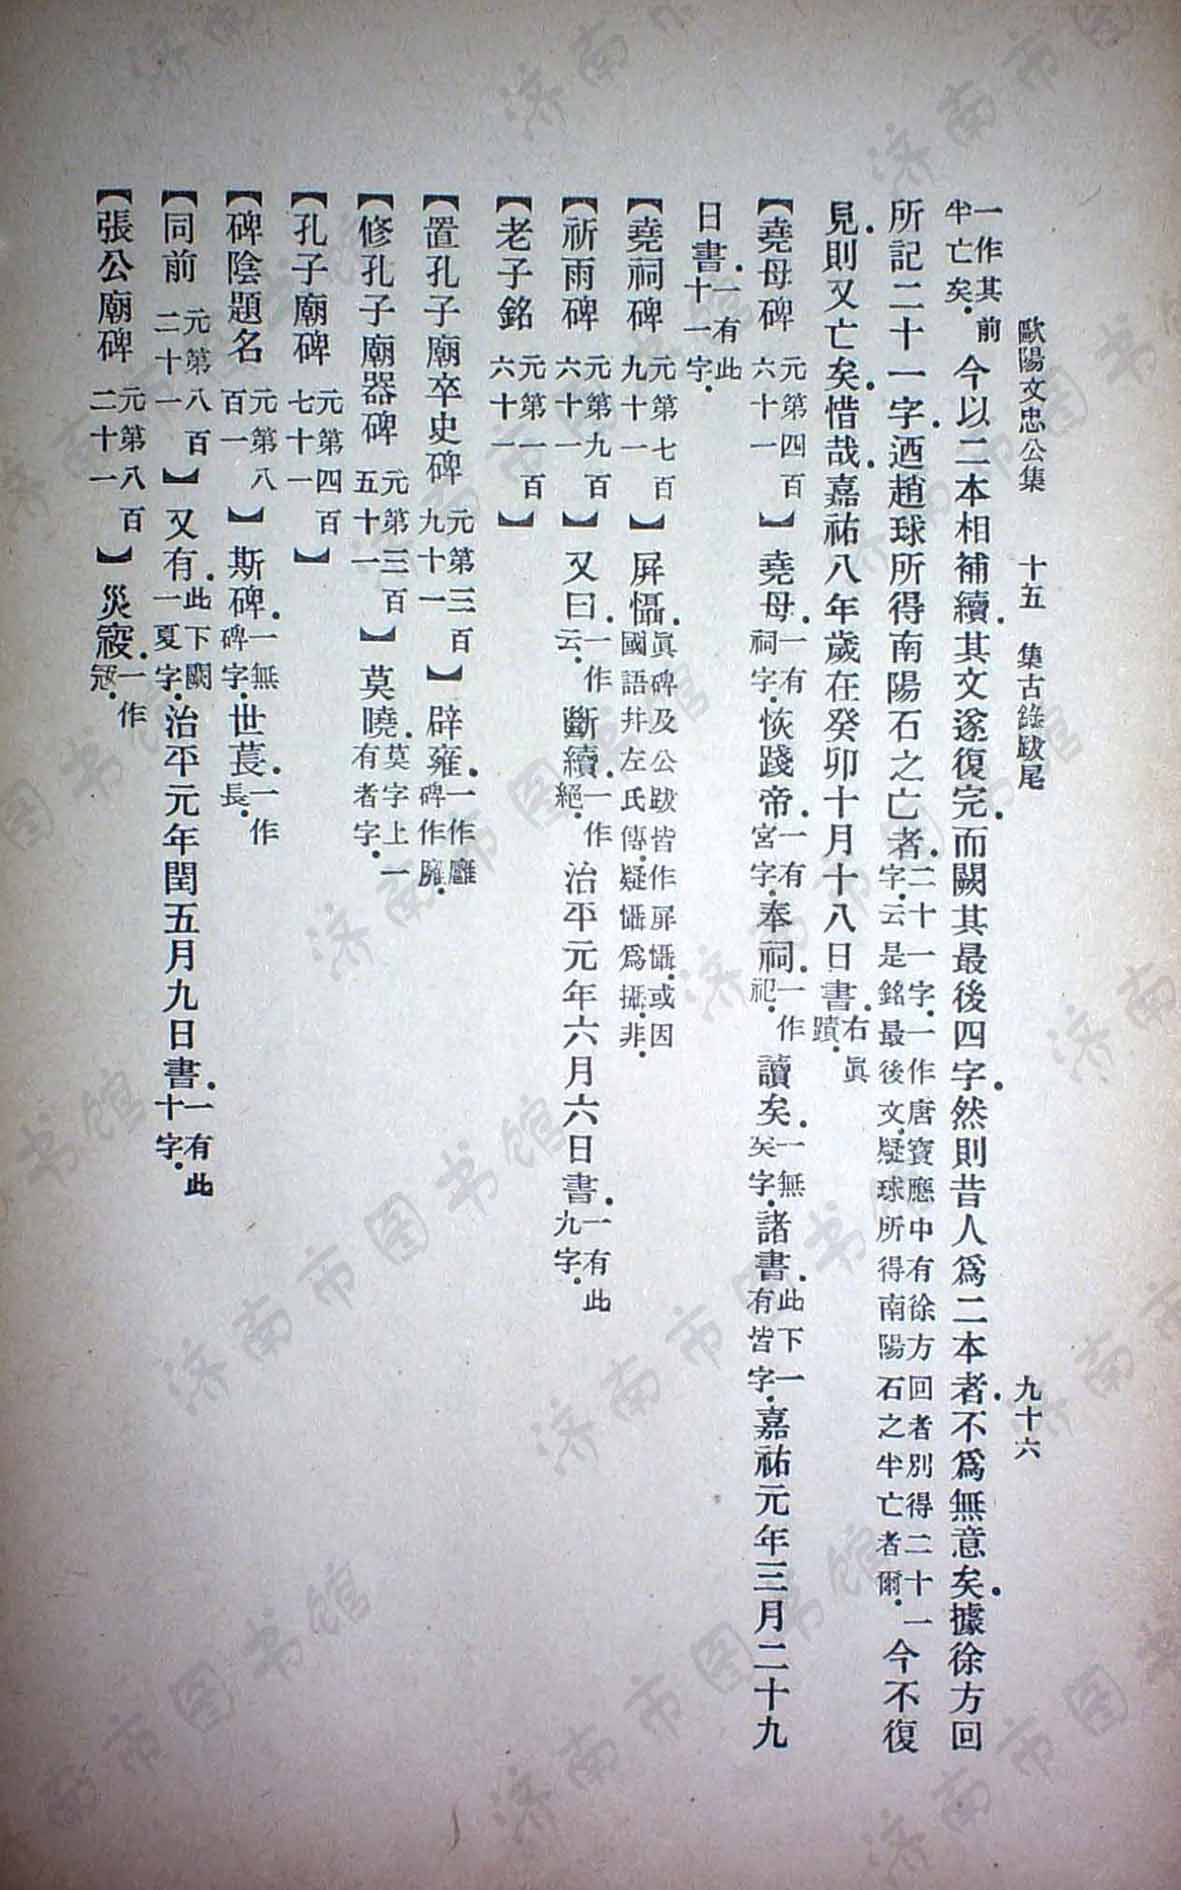 歐陽文忠公集 十五 集古錄跋尾 九十六
一作其前半亡矣．今以二本相補續．其文遂復完．而闕其最後四字．然則昔人爲二本者．不爲無意矣．據徐方回
所記二十一字．迺趙球所得南陽石之亡者．二十一字．一作唐寶應中有徐方回者別得二十一字．云是銘最後文．疑球所得南陽石之半亡者爾．今不復
見．則又亡矣．惜哉．嘉祐八年歲在癸卯十月十八日書．右眞蹟．
【堯母碑 元第四百六十一】堯母．一有祠字．恢踐帝．一有宮字．奉祠．一作祀．讀矣．一無矣字．諸書．此下一有皆字．嘉祐元年三月二十九
日書．一有此十一字．
【堯祠碑 元第七百九十一】屏懾．眞碑及公跋皆作屏懾．或因國語幷左氏傳．疑懾爲攝．非．
【祈雨碑 元第九百六十一】又曰．一作云．斷續．一作絕．治平元年六月六日書．一有此九字．
【老子銘 元第一百六十一】
【置孔子廟卒史碑 元第三百九十一】辟雍．一作廱碑作廱．
【修孔子廟器碑 元第三百五十一】莫曉．莫字上一有者字．
【孔子廟碑 元第四百七十一】
【碑陰題名 元第八百一】斯碑．一無碑字．世萇．一作長．
【同前 元第八百二十一】又有．此下闕一夏字．治平元年閏五月九日書．一有此十字．
【張公廟碑 元第八百二十一】災㝮．一作冦．
济南市图书馆